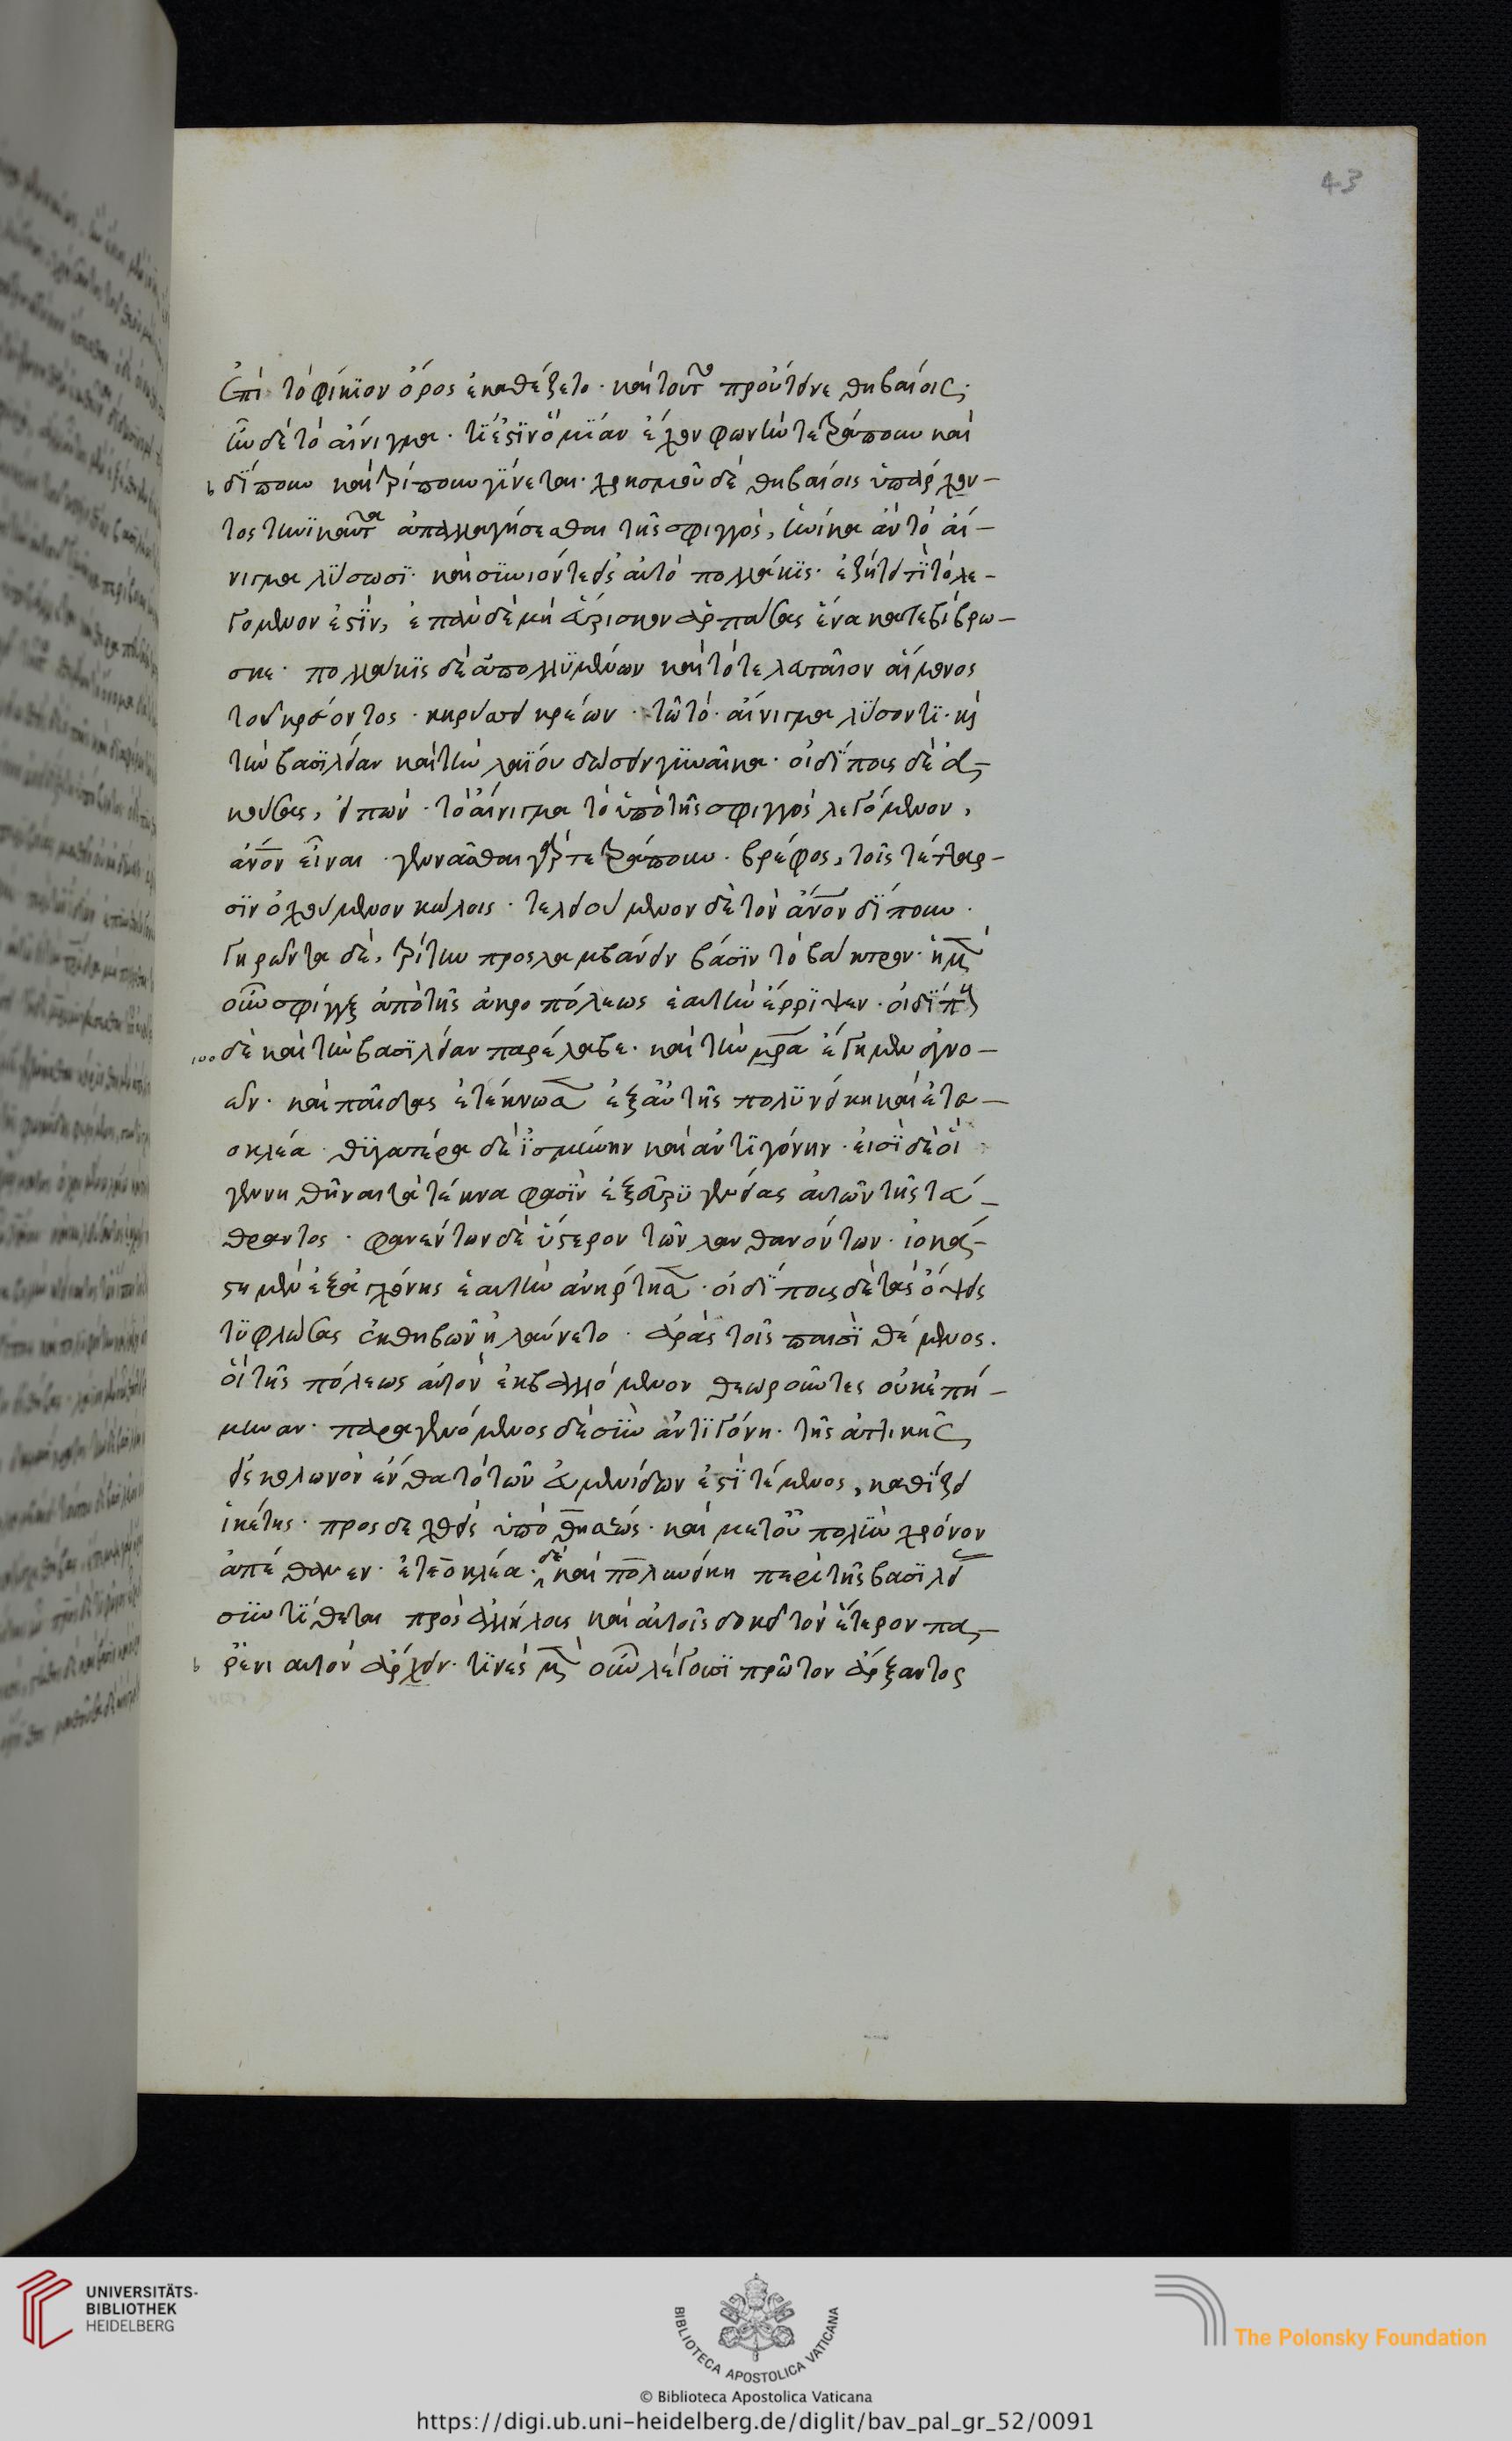 43
ἐπὶ τὸ φίκιον ὄρος ἐκαθέζετο· καὶ τοῦτο προύτεινε θηβαίοις·
ἦν δὲ τὸ αἴνιγμα· τί ἐστιν ὃ μίαν ἔχον φωνὴν τετράπουν καὶ
δίπουν καὶ τρίπουν γίνεται· χρησμοῦ δὲ θηβαίοις ὑπάρχον-
τος τηνικαῦτα ἀπαλλαγήσεσθαι τῆς σφιγγὸς, ἡνίκα ἂν τὸ αἴ-
νιγμα λύσωσι· καὶ συνιόντες εἰς αὐτὸ πολλάκις· ἐζήτει τί τὸ λε-
γόμενον ἐστὶν, ἐπὰν δὲ μὴ εὕρισκον ἁρπάσας ἕνα κατεβίβρω-
σκε· πολλάκις δὲ ἀπολλυμένων καὶ τότε λαπαῖον αἵμονος
τοῦ κρέοντος· κηρύσσει κρέων· τῶ τὸ αἴνιγμα λύσοντι· καὶ
τὴν βασιλείαν καὶ τὴν λαΐου δώσειν γυναῖκα· οἰδίπους δὲ ἀ-
κούσας, εἰπὼν· τὸ αἴνιγμα τὸ ὑπὸ τῆς σφιγγὸς λεγόμενον,
ἄνον εἶναι· γεννᾶσθαι γὰρ τετράπουν· βρέφος, τοῖς τέτταρ-
σιν ὀχούμενον κώλοις· τελειούμενον δὲ τὸν ἄνον δίπουν·
γηρῶντα δὲ, τρίτην προσλαμβάνειν βάσιν τὸ βάκτρον· ἡ μὲν
οὖν σφίγξ ἀπὸ τῆς ἀκροπόλεως ἑαυτὴν ἔρριψεν· οἰδίπους
100 δὲ καὶ τὴν βασιλείαν παρέλαβε· καὶ τὴν μρα ἔγημεν ἀγνο-
ῶν· καὶ παῖδας ἐτέκνωσεν ἐξ αὐτῆς πολυνείκη καὶ ἐτεο-
κλέα· θυγατέρα δὲ ἰσμήνην καὶ ἀντιγόνην· εἰσὶ δὲ οἳ
γεννηθῆναι τὰ τέκνα φασὶν ἐξ εὐρυγενείας αὐτῶν τῆς τά-
θραντος· φανέντων δὲ ὕστερον τῶν λανθανόντων· ἰοκά-
στη μὲν ἐξ ἀγχόνης ἑαυτὴν ἀνήρτησεν· οἰδίπους δὲ τὰς ὄψεις
τυφλώσας ἐκ θηβῶν ἠλαύνετο· ἀρὰς τοῖς παισὶ θέμενος·
οἳ τῆς πόλεως αὐτὸν ἐκβαλλόμενον θεωροῦντες οὐκ ἐπή-
μυναν· παραγενόμενος δὲ σὺν ἀντιγόνη· τῆς ἀττικῆς
εἰς κολωνὸν ἔνθα τὸ τῶν εὐμενίδων ἐστὶ τέμενος, καθίζει
ἱκέτης· προσδεχθεὶς ὑπὸ θησέως· καὶ μετ' οὐ πολὺν χρόνον
ἀπέθανεν· ἐτεοκλέα δὲ καὶ πολυνείκη περὶ τῆς βασιλεί
συντίθεται πρὸς ἀλλήλους καὶ αὐτοῖς δοκεῖ τὸν ἕτερον πα-
ρ' ἐνιαυτὸν ἄρχειν· τινὲς μὲν οὖν λέγουσι πρῶτον ἄρξαντος
UNIVERSITÄTS-
BIBLIOTHEK
HEIDELBERG
BIBLIOTECA APOSTOLICA VATICANA
© Biblioteca Apostolica Vaticana
The Polonsky Foundation
https://digi.ub.uni-heidelberg.de/diglit/bav_pal_gr_52/0091